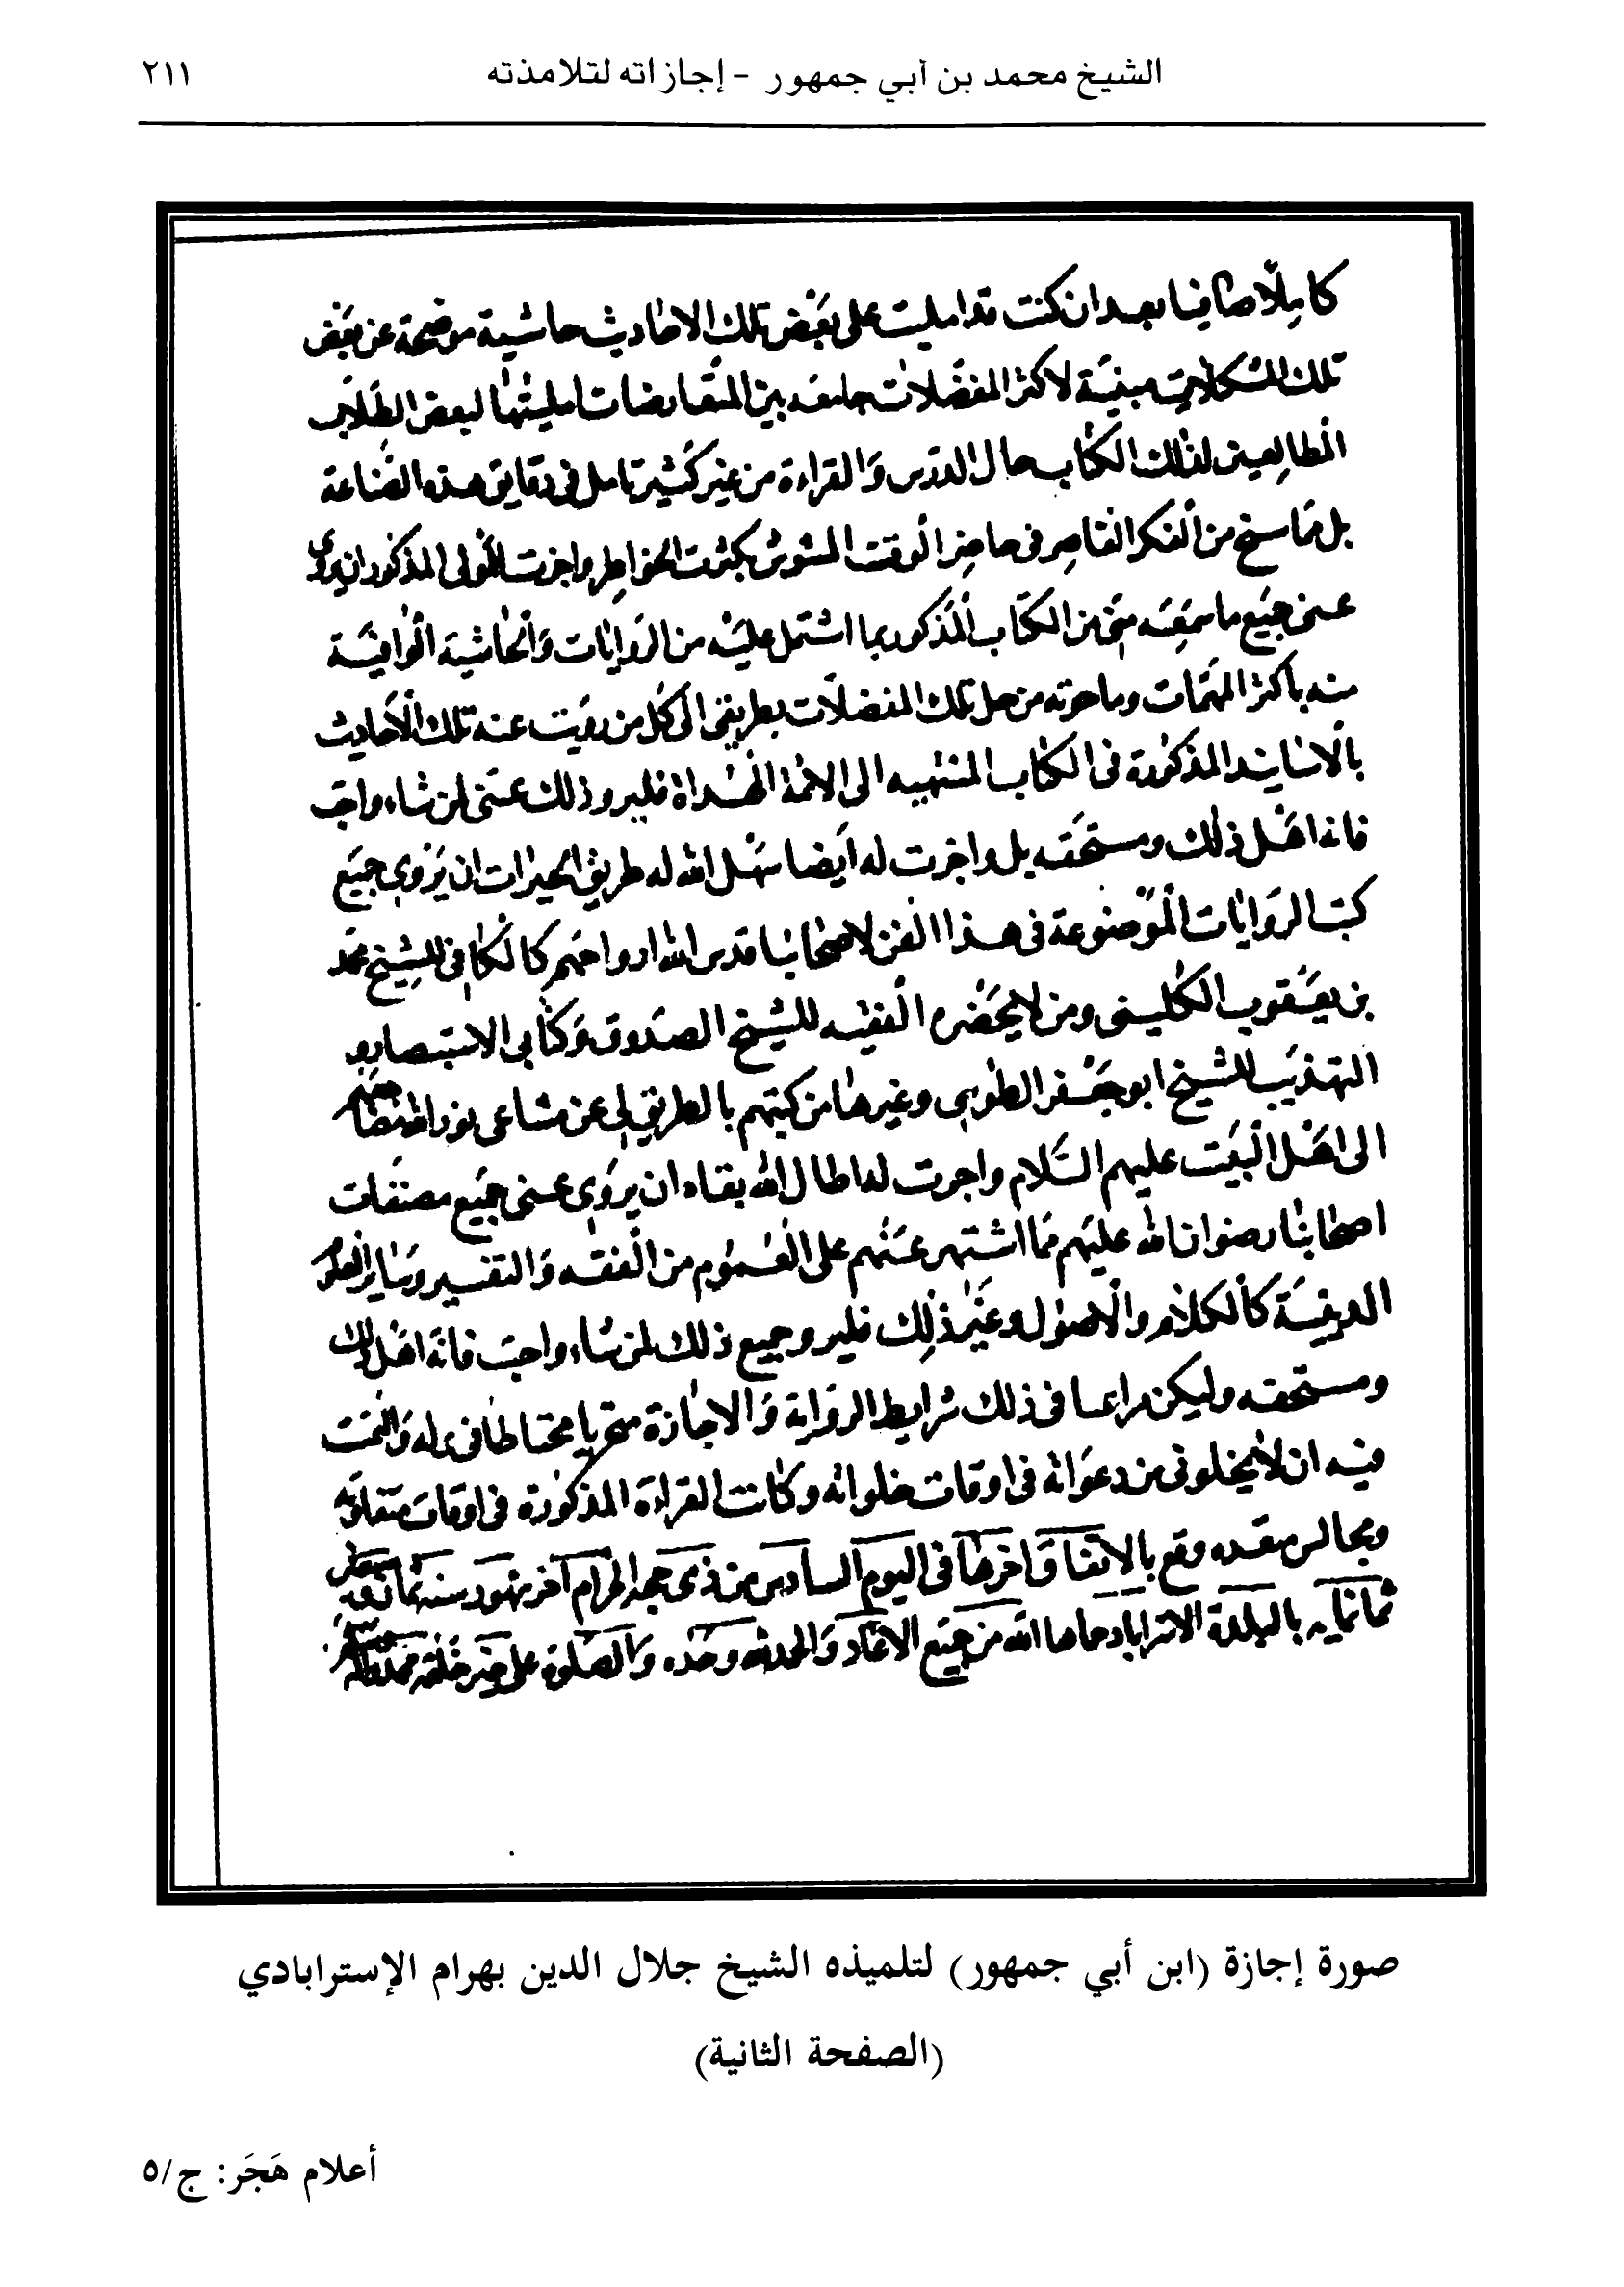 الشيخ محمد بن أبي جمهور - إجازاته لتلامذته ٢١١
كاملا صافيا بعد ان كنت قد امليت على بعض تلك الاحاديث حاشية موضحة عن بعض
تلك المشكلات مبنية لاكثر المعضلات جامعه بين المتعارضات امليتها لبعض الطلاب
المطالعين لذلك الكتاب حال الدرس والقراءة من غير كثير تامل فى دقايق هذه الصناعة
بل مما سنح من الفكر القاصر فى حاضر الوقت المشوش بكثرت الخواطر واجزت للمولى المذكور ان يروى
عنى جميع ما سمعه منى من الكتاب المذكور بما اشتمل عليه من الروايات والحاشية الوافية
منه باكثر المهمات وما حوته من حل تلك المعضلات بطريقى الى كل من رويت عنه تلك الاحاديث
بالاسانيد المذكورة فى الكتاب المنتهيه الى الائمة الهداة فليرو ذلك عنى لمن شاء واحب
فانه اهل ذلك ومستحقه بل واجزت له ايضا سهل الله له طريق الخيرات ان يروى جميع
كتب الروايات الموضوعة فى هذا الفن لاصحابنا قدس الله ارواحهم كالكافى للشيخ محمد
بن يعقوب الكلينى ومن لا يحضره الفقيه للشيخ الصدوق وكتابى الاستبصار و
التهذيب للشيخ ابو جعفر الطوسى وغيرها من كتبهم بالطريق لى عن مشايخى نور الله مضاجعهم
الى اهل البيت عليهم السلام واجزت له اطال الله بقاءه ان يروى عنى جميع مصنفات
اصحابنا رضوان الله عليهم مما اشتهر عنهم على العموم من الفقه والتفسير وساير العلوم
الدينية كالكلام والاصول وغير ذلك فليرو جميع ذلك لمن شاء واحب فانه اهل ذلك
ومستحقه وليكن مراعيا فى ذلك شرايط الرواية والاجازة متحريا محتاطا لى وله والتمست
منه ان لا يخلونى من دعواته فى اوقات خلواته وكانت القراءة المذكورة فى اوقات متفاوته
ومجالس متعدده وقع بالاتفاق اخرها فى اليوم السادس من ذى حجه الحرام آخر شهور سنه ثمان وتسعين
ثمانمايه بالبلدة الاتراباد حماها الله من جميع الافات والحمد لله وحده والصلوة على خير خلقه محمد وآله
صورة إجازة (ابن أبي جمهور) لتلميذه الشيخ جلال الدين بهرام الإسترابادي
(الصفحة الثانية)
أعلام هَجَر: ج/٥